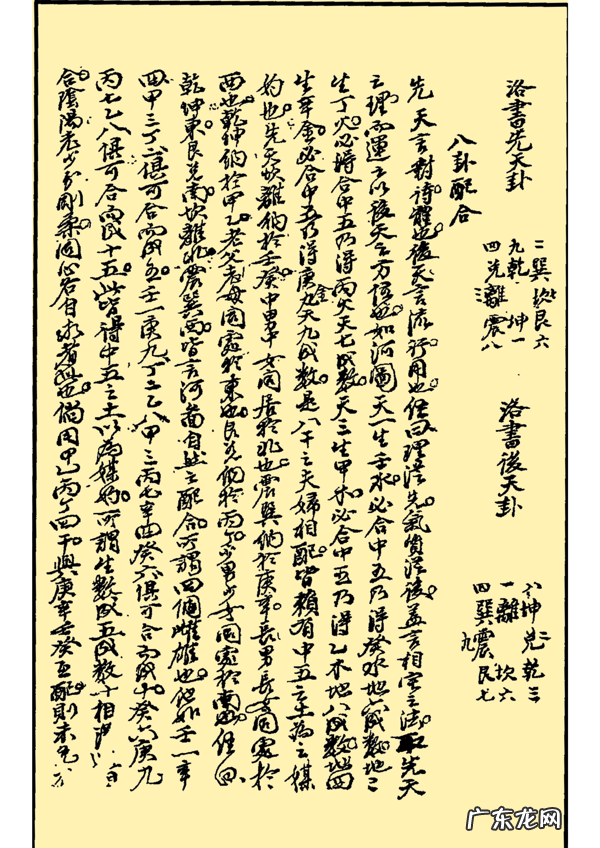 洛書先天卦
二巽坎艮六
九乾 坤一
四兌離震八
洛書後天卦
坤兌乾三
一離坎六
四巽震艮七
九
八卦配合
先天言對待體也後天言流行用也經曰理從先氣質從後蓋言相宅之法取先天
之理而運之以後天之方位也如河圖天一生壬水必合中五乃得癸水地六成數地二
生丁火必得合中五乃得丙火天七成數天三生甲木必合中五乃得乙木地八成數地四
生辛金必合中五乃得庚金天九成數是八干之夫婦相配皆賴有中五之土為之媒
妁也先天坎離納於壬癸中男中女同居於北也震巽納於庚辛長男長女同處於
西也乾坤納於甲乙老父老母同處於東也艮兌納於丙丁少男少女同處於南也經曰
乾坤東艮兌南坎離北震巽西皆言河圖自然之配合可謂四個雌雄也他如壬一辛
四甲三丁二俱可合而成五壬一庚九丁二乙八甲三丙七辛四癸六俱可合而成十癸六庚九
丙七乙八俱可合而成十五此皆得中五之土以為媒妁可謂生數成五成數十相
合陰陽老少分剛柔同心各自求者此也倘用甲乙丙丁四干與庚辛壬癸互配則未
广东龙网